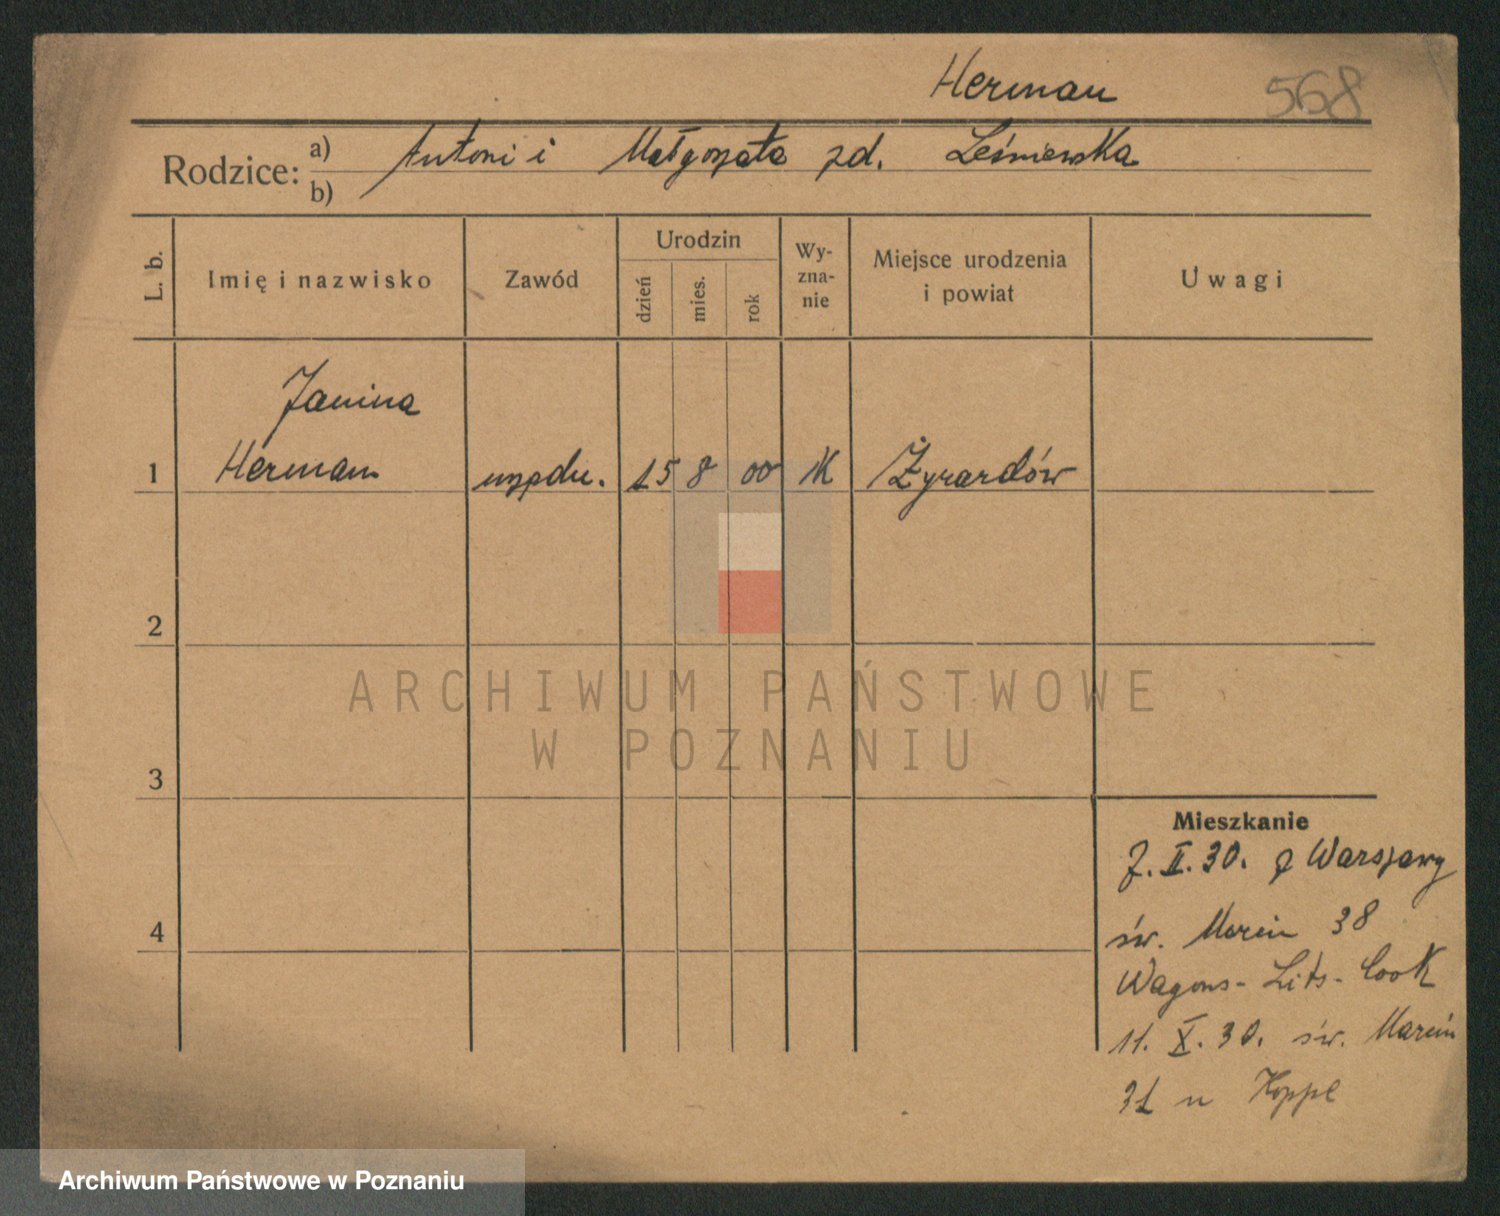 Herman 568
Rodzice: a) Antoni i Małgorzata zd. Leśniewska
b)
L. b. Imię i nazwisko Zawód Urodzin dzień mies. rok Wy-zna-nie Miejsce urodzenia i powiat Uwagi
Janina
1 Herman urzędn. 15 8 00 K Żyrardów
2
ARCHIWUM PAŃSTWOWE
W POZNANIU
3
Mieszkanie
7. II. 30. z Warszawy
4
św. Marcin 38
Wagons-Lits-Cook
11. X. 30. św. Marcin
31 u Koppe
Archiwum Państwowe w Poznaniu